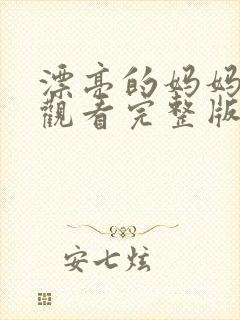 漂亮的妈妈
觀看完整版
安七炫